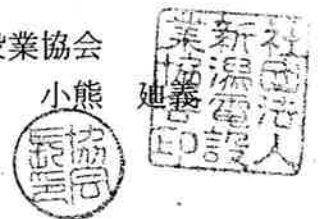 業協会
小熊　廸義
社団法人
新潟電設
業協会印
協会
長印